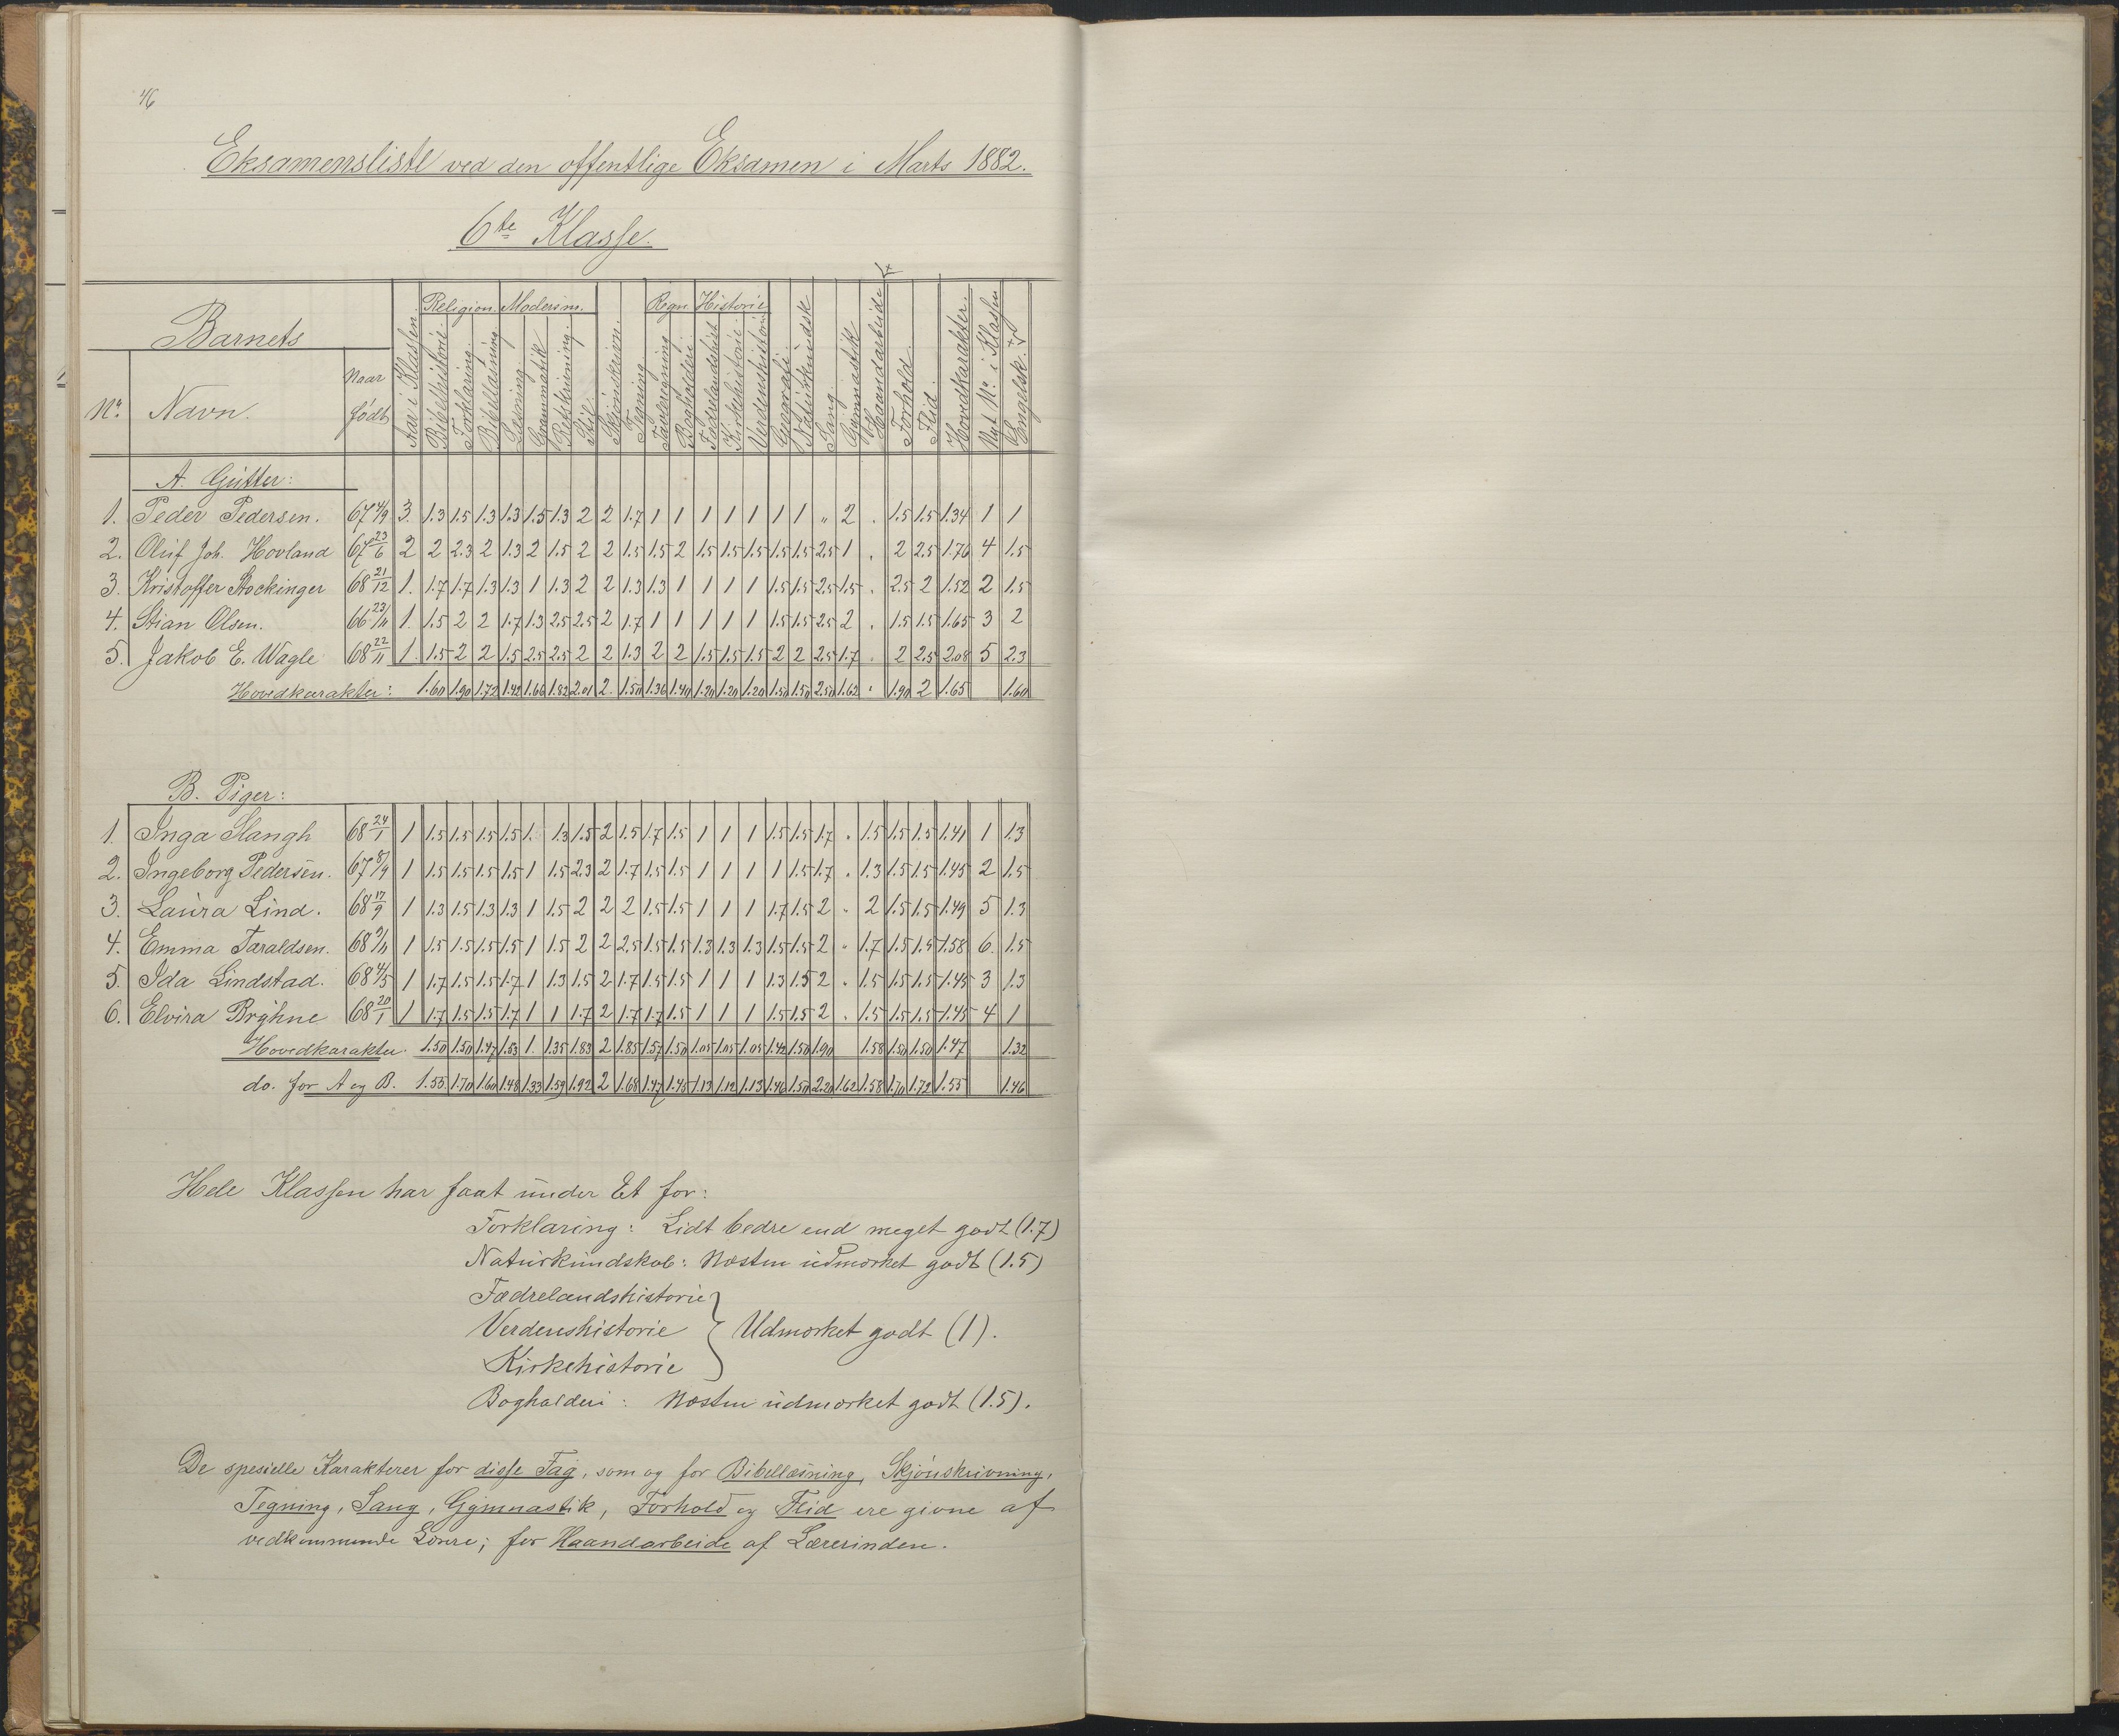 46
Eksamensliste ved den offentlige Eksamen i Marts 1882.
6te Klasse.
Barnets
No. Navn. Naar født Aar i Klassen. Religion. Bibelhistorie. Forklaring. Bibellæsning Modersm. Læsning. Grammatik Retskrivning. Stil. Skjønskrivn. Tegning. Regn. Tavleregning Bogholderi. Historie Fædrelandshist Kirkehistorie Verdenshistorie Geografi. Naturkundsk Sang. Gymnastik Haandarbeide Forhold. Flid. Hovedkarakter. Nyt No. i Klassen Engelsk.
A. Gutter:
1. Peder Pedersen. 67 4/9 3. 1.3 1.5 1.3 1.3 1.5 1.3 2 2 1.7 1 1 1 1 1 1 1 „ 2 . 1.5 1.5 1.34 1 1
2. Oluf Joh. Hovland 67 23/6 2 2 2.3 2 1.3 2 1.5 2 2 1.5 1.5 2 1.5 1.5 1.5 1.5 1.5 2.5 1 . 2 2.5 1.76 4 1.5
3. Kristoffer Stockinger 68 21/12 1. 1.7 1.7 1.3 1.3 1 1.3 2 2 1.3 1.3 1 1 1 1 1.5 1.5 2.5 1.5 . 2.5 2 1.52 2 1.5
4. Stian Olsen. 66 23/11 1. 1.5 2 2 1.7 1.3 2.5 2.5 2 1.7 1 1 1 1 1 1.5 1.5 2.5 2 . 1.5 1.5 1.65 3 2
5. Jakob E. Wagle 68 22/11 1. 1.5 2 2 1.5 2.5 2.5 2 2 1.3 2 2 1.5 1.5 1.5 2 2 2.5 1.7 . 2 2.5 2.08 5 2.3
Hovedkarakter: 1.60 1.90 1.72 1.42 1.66 1.82 2.01 2. 1.50 1.36 1.40 1.20 1.20 1.20 1.50 1.50 2.50 1.62 . 1.90 2 1.65 1.60
B. Piger:
1. Inga Slangh 68 24/1 1 1.5 1.5 1.5 1.5 1. 1.3 1.5 2 1.5 1.7 1.5 1 1 1 1.5 1.5 1.7 . 1.5 1.5 1.5 1.41 1 1.3
2. Ingeborg Pedersen. 67 8/9 1 1.5 1.5 1.5 1.5 1 1.5 2.3 2 1.7 1.5 1.5 1 1 1 1 1.5 1.7 . 1.3 1.5 1.5 1.45 2 1.5
3. Laura Lind. 68 17/9 1 1.3 1.5 1.3 1.3 1 1.5 2 2 2 1.5 1.5 1 1 1 1.7 1.5 2 . 2 1.5 1.5 1.49 5 1.3
4. Emma Taraldsen. 68 9/11 1 1.5 1.5 1.5 1.5 1 1.5 2 2 2.5 1.5 1.5 1.3 1.3 1.3 1.5 1.5 2 . 1.7 1.5 1.5 1.58 6. 1.5
5. Ida Lindstad. 68 4/5 1 1.7 1.5 1.5 1.7 1 1.3 1.5 2 1.7 1.5 1.5 1 1 1 1.3 1.5 2 . 1.5 1.5 1.5 1.45 3 1.3
6. Elvira Brÿhne 68 20/1 1 1.7 1.5 1.5 1.7 1 1 1.7 2 1.7 1.7 1.5 1 1 1 1.5 1.5 2 . 1.5 1.5 1.5 1.45 4 1
Hovedkarakter. 1.50 1.50 1.47 1.53 1. 1.35 1.83 2 1.85 1.57 1.50 1.05 1.05 1.05 1.42 1.50 1.90 1.58 1.50 1.50 1.47 1.32
do. for A og B. 1.55 1.70 1.60 1.48 1.33 1.59 1.92 2 1.68 1.47 1.45 1.13 1.12 1.13 1.46 1.50 2.20 1.62 1.58 1.70 1.72 1.55 1.46
Hele Klassen har faat under Et for:
Forklaring: Lidt bedre end meget godt (1.7)
Naturkundskab: Næsten udmærket godt (1.5)
Fædrelandshistorie
Verdenshistorie } Udmærket godt (1).
Kirkehistorie
Bogholderi: Næsten udmærket godt (1.5).
De spesielle Karakterer for disse Fag, som og for Bibellæsning, Skjönskrivning,
Tegning, Sang, Gymnastik, Forhold og Flid ere givne af
vedkommende Lærere; for Haandarbeide af Lærerinden.